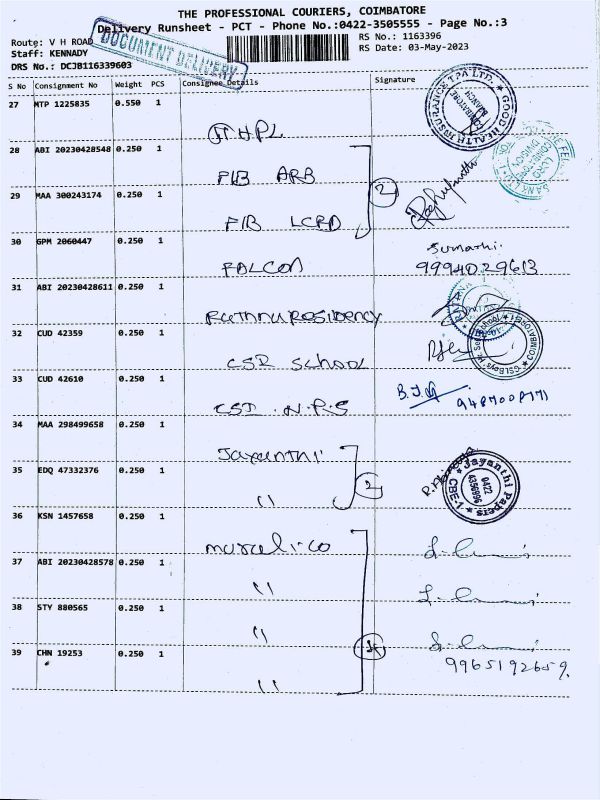 THE PROFESSIONAL COURIERS, COIMBATORE
Delivery Runsheet - PCT - Phone No.:0422-3505555 - Page No.:3
Route: V H ROAD
Staff: KENNADY
DRS No.: DCJB116339603
DOCUMENT DELIVERY
RS No.: 1163396
RS Date: 03-May-2023
S No Consignment No Weight PCS Consignee Details Signature
27 MTP 1225835 0.550 1
GOOD HEALTH INSURANCE TPA LTD. COIMBATORE BRANCH
28 ABI 20230428548 0.250 1
FIB ARB
2
29 MAA 300243174 0.250 1
FIB LCRD
30 GPM 2060447 0.250 1
FALCON
Sumathi.
9994029613
31 ABI 20230428611 0.250 1
RathnaResidency
32 CUD 42359 0.250 1
CSI School
CSI Boys Hr. Sec. School COIMBATORE
33 CUD 42610 0.250 1
CSI . N.P.S
34 MAA 298499658 0.250 1
Jayanthi
2
35 EDQ 47332376 0.250 1
"
Jayanthi Papers 0422 4356996 CBE-1
36 KSN 1457658 0.250 1
37 ABI 20230428578 0.250 1
"
38 STY 880565 0.250 1
"
39 CHN 19253 0.250 1
"
9965192659.